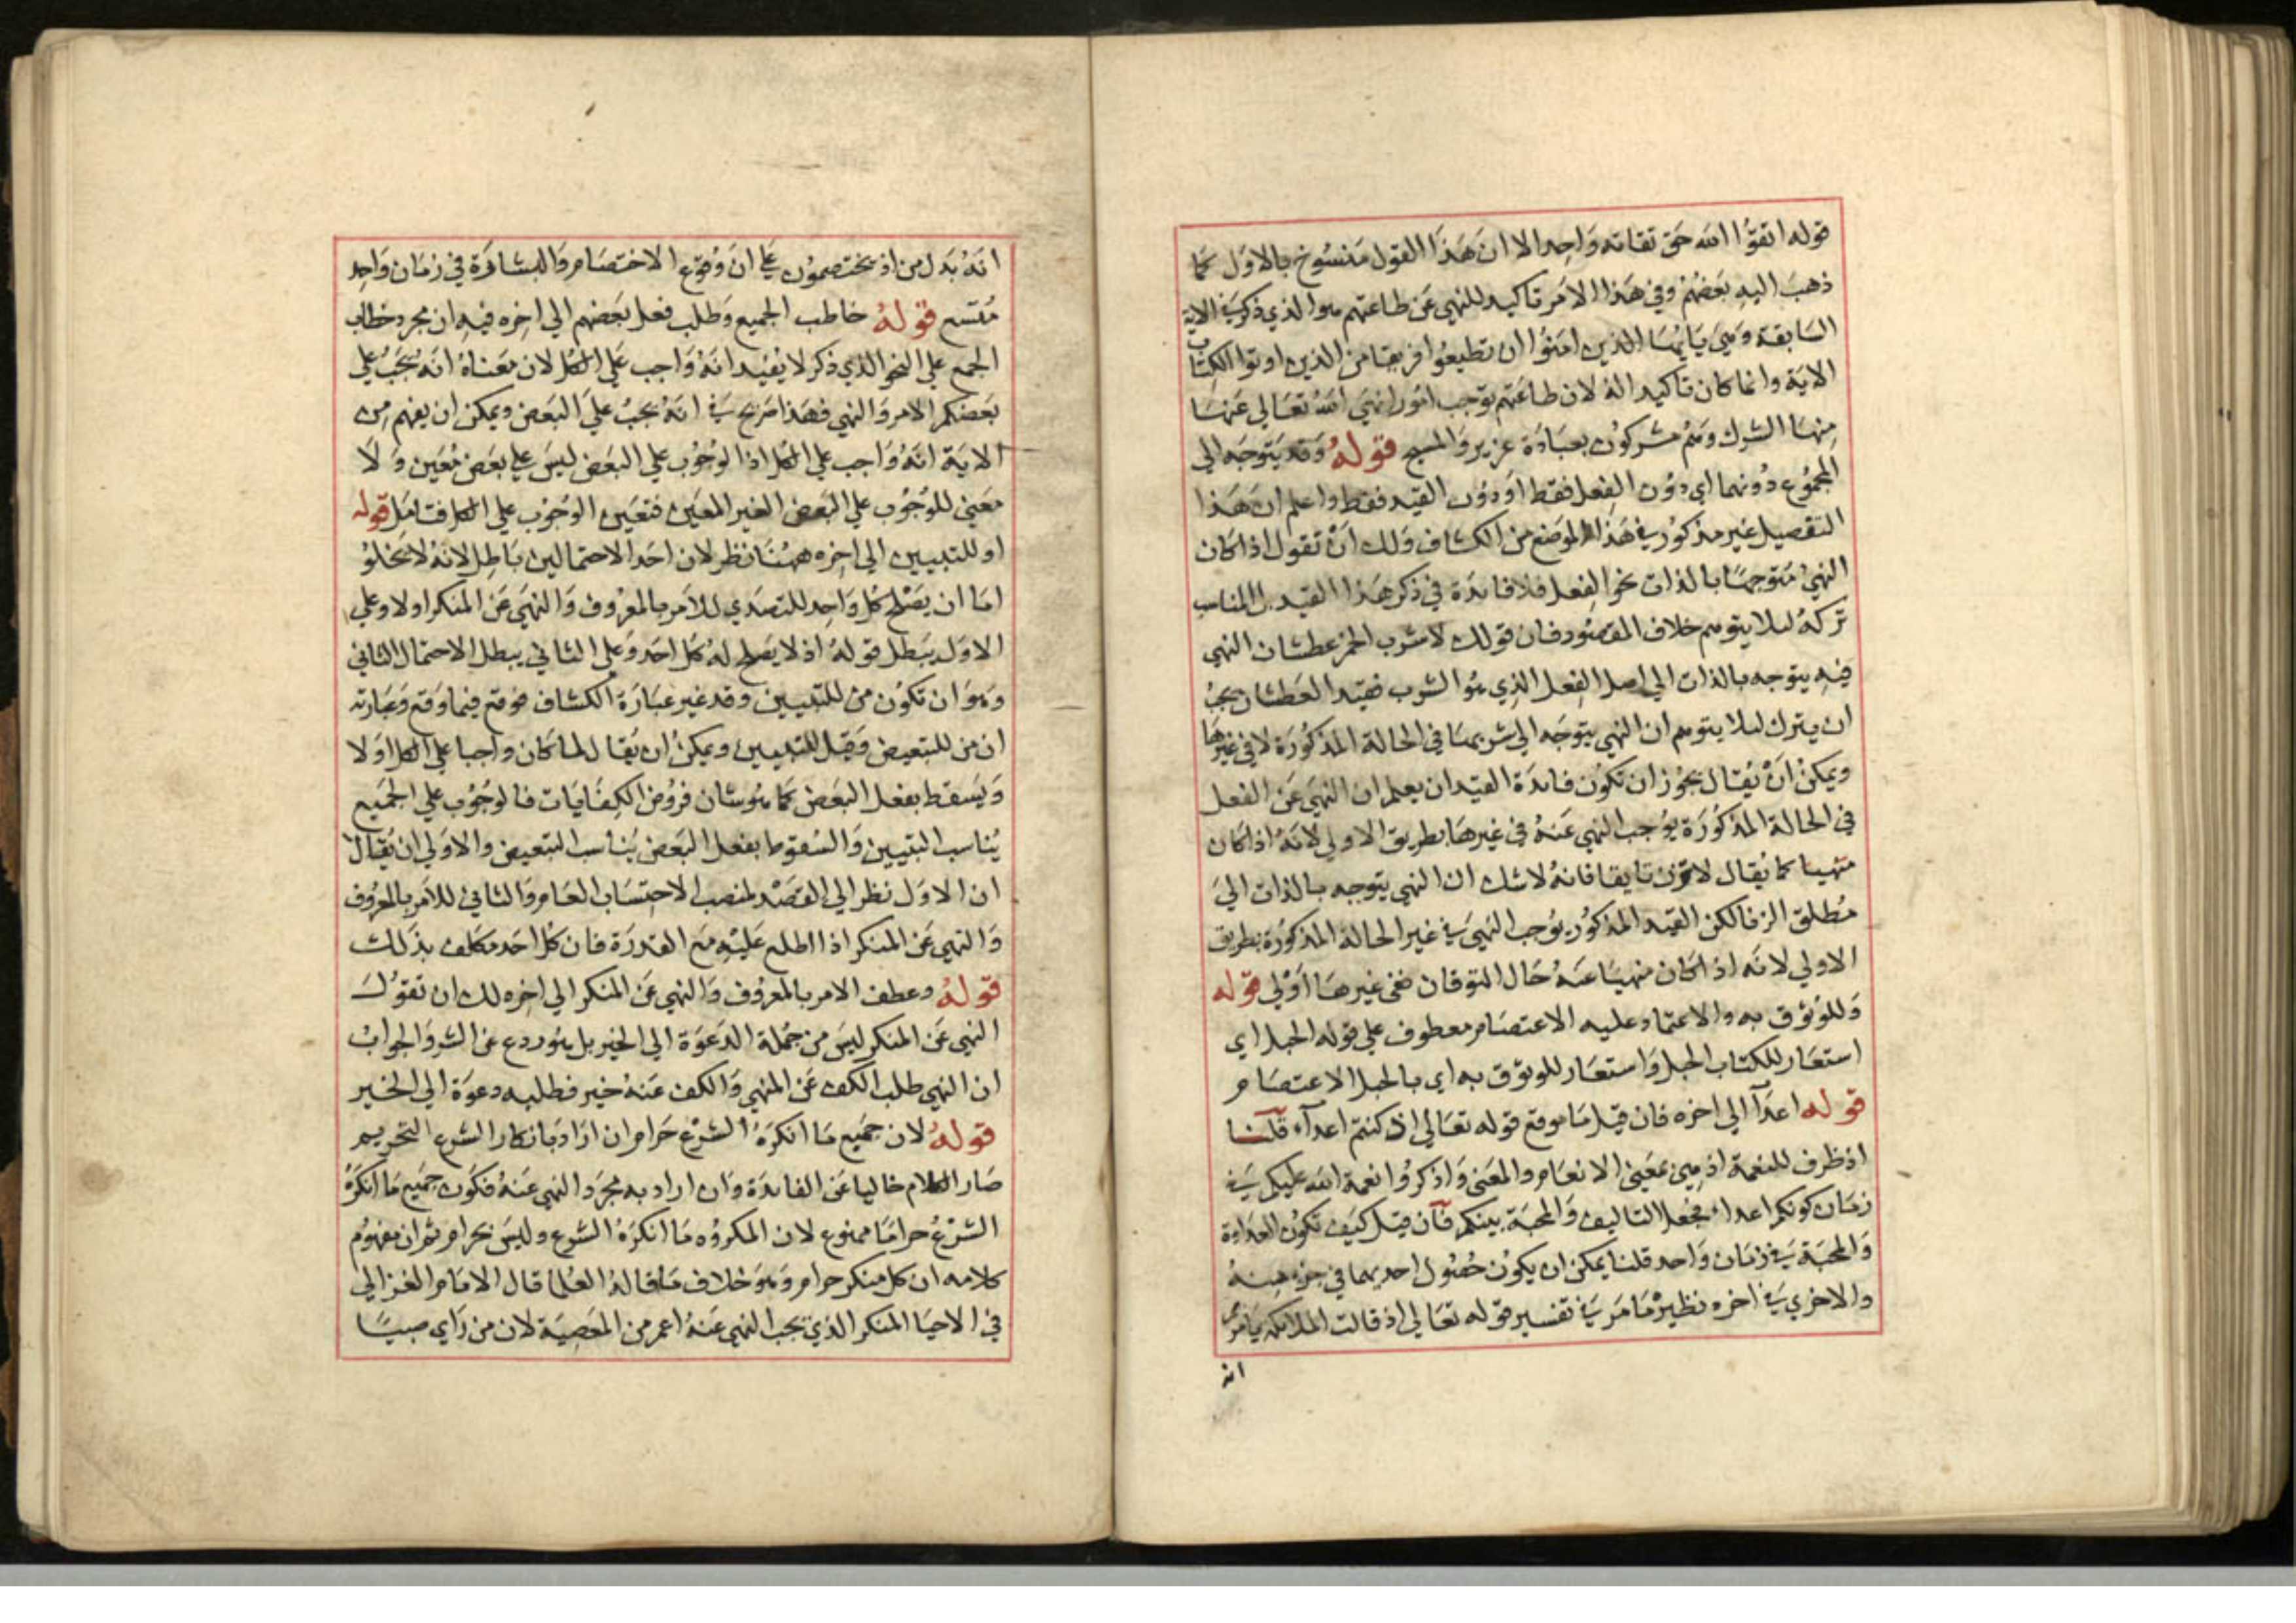 قوله اتقوا الله حق تقاته واحد الا ان هذا القول منسوخ بالاول كما
ذهب اليه بعضهم وفي هذا الامر تاكيد للنهي عن طاعتهم هو الذي ذكر في الاية
السابقة وهي يايها الذين امنوا ان تطيعوا فريقا من الذين اوتوا الكتاب
الاية وانما كان تاكيدا له لان طاعتهم توجب امورا نهي الله تعالي عنها
منها الشرك وهم مشركون بعبادة عزير والمسيح قوله وقد يتوجه الي
المجموع دونهما اي دون الفعل فقط او دون القيد فقط واعلم ان هذا
التفصيل غير مذكور في هذا الموضع من الكشاف ولك ان تقول اذا كان
النهي متوجها بالذات نحو الفعل فلا فايدة في ذكر هذا القيد بل المناسب
تركه ليلا يتوهم خلاف المقصود فان قولك لا تشرب الخمر عطشان النهي
فيه يتوجه بالذات الي اصل الفعل الذي هو الشرب فقيد العطشان يجب
ان يترك ليلا يتوهم ان النهي يتوجه الي شربها في الحالة المذكورة لا في غيرها
ويمكن ان يقال يجوز ان تكون فايدة القيد ان يعلم ان النهي عن الفعل
في الحالة المذكورة يوجب النهي عنه في غيرها بطريق الاولي لانه اذا كان
منهيا كما يقال لا تزن تايقا فانه لا شك ان النهي يتوجه بالذات الي
مطلق الزنا لكن القيد المذكور يوجب النهي في غير الحالة المذكورة بطريق
الاولي لانه اذا كان منهيا عنه حال التوقان ففي غيرها اولي قوله
وللوثوق به والاعتماد عليه الاعتصام معطوف علي قوله الحبل اي
استعار للكتاب الحبل واستعار للوثوق به اي بالحبل الاعتصام
قوله اعداء الي اخره فان قيل ما موقع قوله تعالي اذ كنتم اعداء قلنا
اذ ظرف للنعمة اذ هي بمعني الانعام والمعني واذكروا نعمة الله عليكم في
زمان كونكم اعداء فجعل التاليف والمحبة بينكم فان قيل كيف تكون العداوة
والمحبة في زمان واحد قلنا يمكن ان يكون حصول احديهما في جزء منه
والاخري في اخره نظيره ما مر في تفسير قوله تعالي اذ قالت الملائكة يا مريم
انه
انه بدل من اذ يختصمون علي ان وقوع الاختصام والبشارة في زمان واحد
متسع قوله خاطب الجميع وطلب فعل بعضهم الي اخره فيه ان مجرد خطاب
الجمع علي النحو الذي ذكر لا يفيد انه واجب علي الكل لان معناه انه يجب علي
بعضكم الامر والنهي فهذا صريح في انه يجب علي البعض ويمكن ان يفهم من
الاية انه واجب علي الكل اذ الوجوب علي البعض ليس علي بعض معين ولا
معني للوجوب علي البعض الغير المعين فتعين الوجوب علي الكل فتامل قوله
او للتبيين الي اخره ههنا نظر لان احد الاحتمالين باطل لانه لا يخلو
اما ان يصلح كل واحد للتصدي للامر بالمعروف والنهي عن المنكر او لا وعلي
الاول يبطل قوله اذ لا يصلح له كل احد وعلي الثاني يبطل الاحتمال الثاني
وهو ان تكون من للتبيين وقد غير عبارة الكشاف فوقع فيما وقع وعبارته
ان من للتبعيض وقيل للتبيين ويمكن ان يقال لما كان واجبا علي الكل اولا
ويسقط بفعل البعض كما هو شان فروض الكفايات فالوجوب علي الجميع
يناسب التبيين والسقوط بفعل البعض يناسب التبعيض والاولي ان يقال
ان الاول نظر الي القصد لمنصب الاحتساب العام والثاني للامر بالمعروف
والنهي عن المنكر اذا اطلع عليه مع القدرة فان كل احد مكلف بذلك
قوله وعطف الامر بالمعروف والنهي عن المنكر الي اخره لك ان تقول
النهي عن المنكر ليس من جملة الدعوة الي الخير بل هو ردع عن الشر والجواب
ان النهي طلب الكف عن المنهي والكف عنه خير فطلبه دعوة الي الخير
قوله لان جميع ما انكره الشرع حرام ان اراد بانكار الشرع التحريم
صار الكلام خاليا عن الفايدة وان اراد به مجرد النهي عنه فكون جميع ما انكره
الشرع حراما ممنوع لان المكروه ما انكره الشرع وليس بحرام ثم ان مفهوم
كلامه ان كل منكر حرام وهو خلاف ما قاله العلما قال الامام الغزالي
في الاحيا المنكر الذي يجب النهي عنه اعم من المعصية لان من راي صبيا